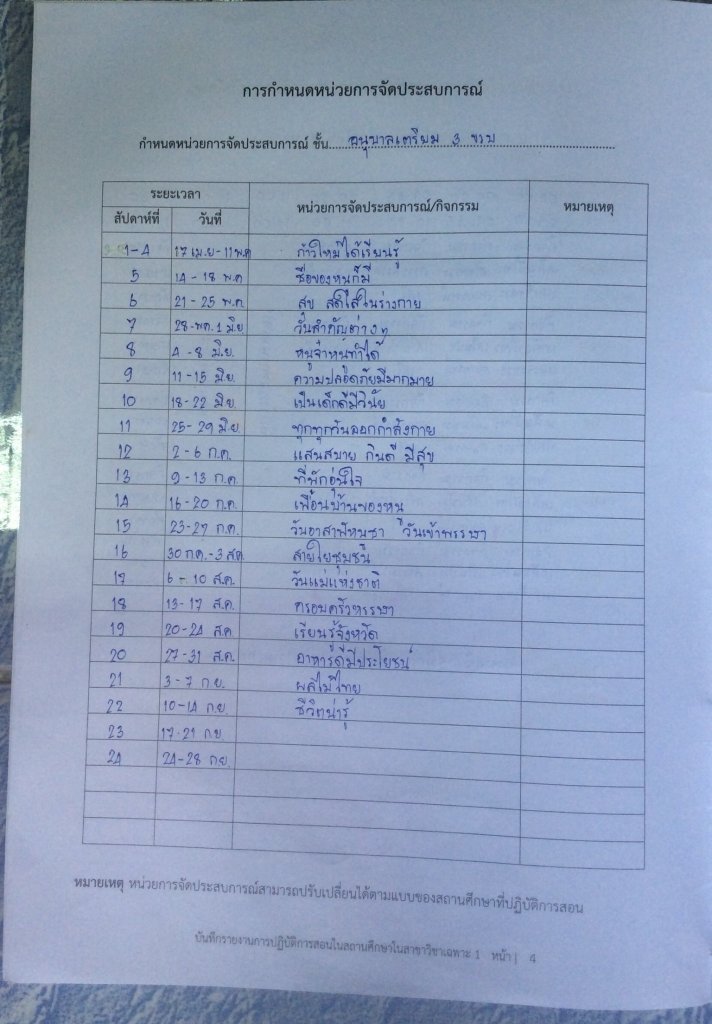 การกำหนดหน่วยการจัดประสบการณ์
กำหนดหน่วยการจัดประสบการณ์ ชั้น อนุบาลเตรียม 3 ขวบ
ระยะเวลา หน่วยการจัดประสบการณ์/กิจกรรม หมายเหตุ
สัปดาห์ที่ วันที่
1-4 17 เม.ย - 11 พ.ค ก้าวใหม่ได้เรียนรู้
5 14 - 18 พ.ค ชื่อของหนูก็มี
6 21 - 25 พ.ค. สุข สดใสในร่างกาย
7 28-พ.ค. 1 มิ.ย วันสำคัญต่างๆ
8 4 - 8 มิ.ย. หนูจ๋าหนูทำได้
9 11 - 15 มิ.ย. ความปลอดภัยมีมากมาย
10 18-22 มิ.ย. เป็นเด็กดีมีวินัย
11 25-29 มิ.ย. ทุกทุกวันออกกำลังกาย
12 2-6 ก.ค. แสนสบาย กินดี มีสุข
13 9-13 ก.ค. ที่พักอุ่นใจ
14 16-20 ก.ค. เพื่อนบ้านของหนู
15 23-27 ก.ค. วันอาสาฬหบูชา วันเข้าพรรษา
16 30 ก.ค.-3 ส.ค สายใยชุมชน
17 6 - 10 ส.ค. วันแม่แห่งชาติ
18 13-17 ส.ค. ครอบครัวหรรษา
19 20-24 ส.ค เรียนรู้จังหวัด
20 27-31 ส.ค. อาหารดีมีประโยชน์
21 3-7 ก.ย. ผลไม้ไทย
22 10-14 ก.ย. ชีวิตน่ารู้
23 17-21 ก.ย
24 24-28 ก.ย.
หมายเหตุ หน่วยการจัดประสบการณ์สามารถปรับเปลี่ยนได้ตามแบบของสถานศึกษาที่ปฏิบัติการสอน
บันทึกรายงานการปฏิบัติการสอนในสถานศึกษาในสาขาวิชาเฉพาะ 1 หน้า | 4